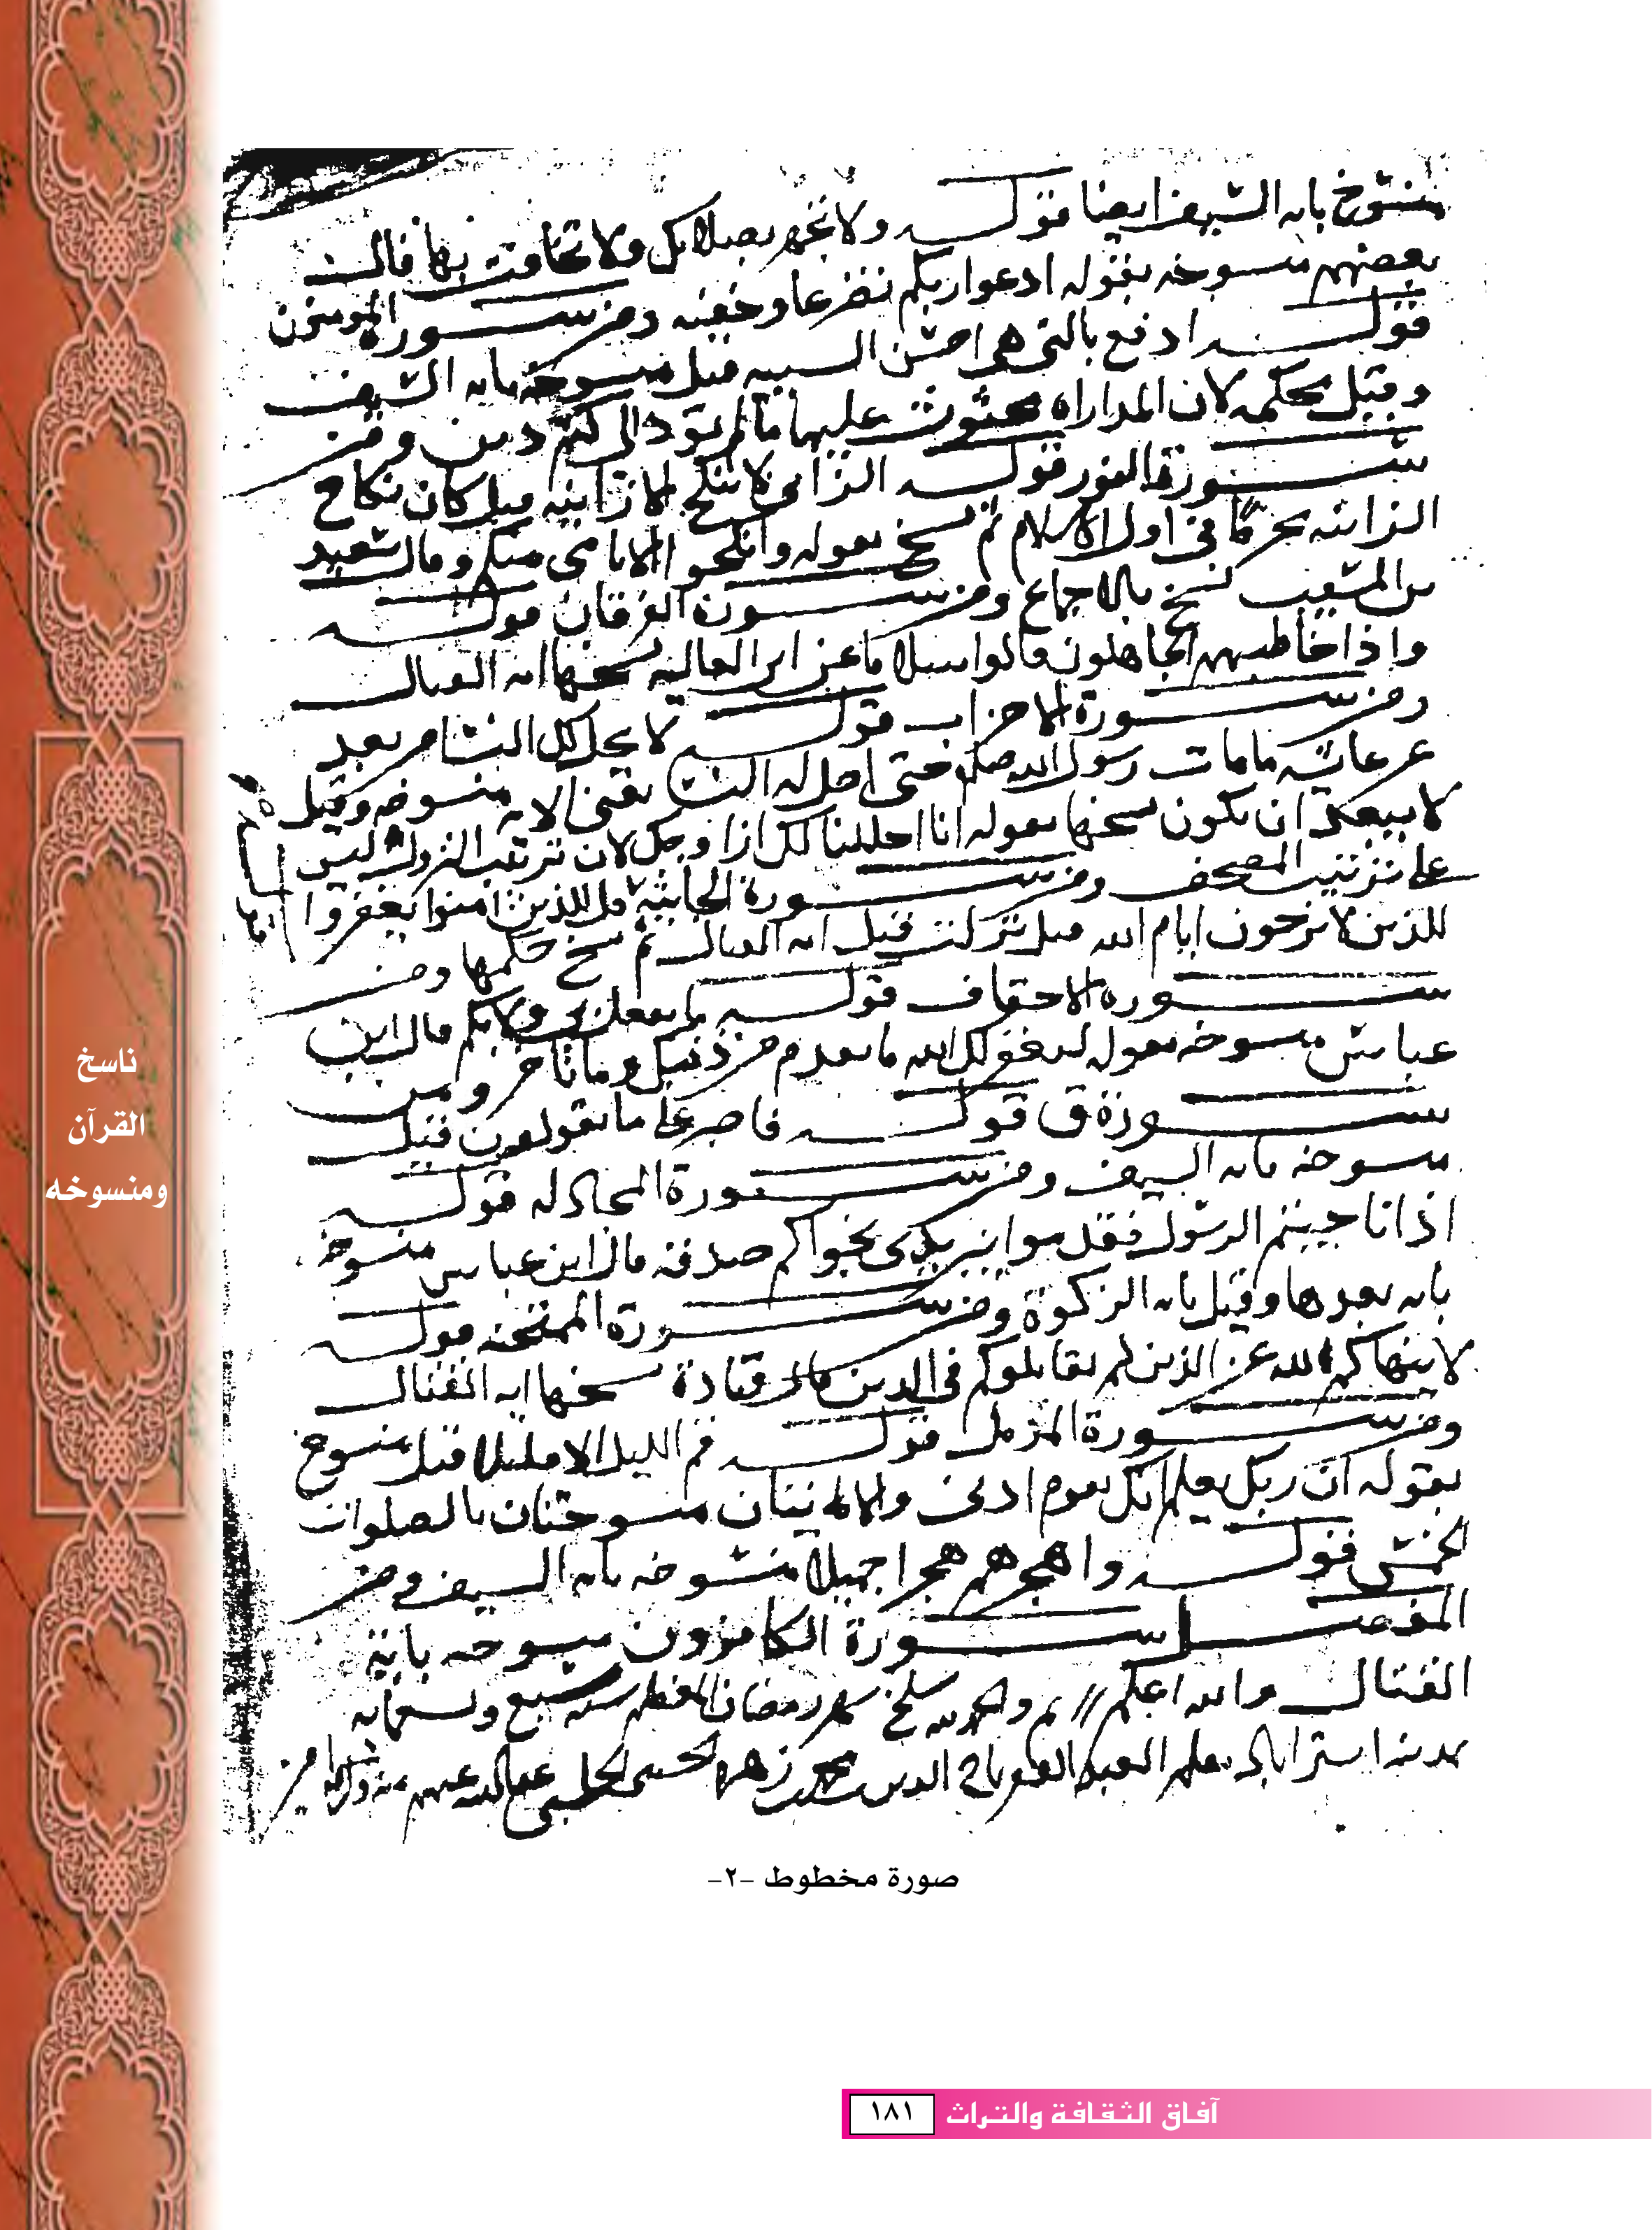 منسوخ بايه السيف ايضا قوله ولا تجهر بصلاتك ولا تخافت بها قالت
بعضهم منسوخه بقوله ادعوا ربكم تضرعا وخفيه ومن سورة المومنون
قوله ادفع بالتي هي احسن السييه قيل منسوخه بايه السيف
وقيل محكمه لان المداراه محثوث عليها ما لم تود الى كثم دين ومن
سورة النور قوله الزاني لا ينكح الا زانيه قيل كان نكاح
الزانيه محرما في اول الاسلام ثم نسخ بقوله وانكحوا الايامى منكم وقال سعيد
بن المسيب نسخ بالاجماع ومن سورة الفرقان قوله
واذا خاطبهم الجاهلون قالوا سلاما عن ابى العاليه نسخها ايه القتال
ومن سورة الاحزاب قوله لا يحل لك النسا من بعد
عن عائشه ما مات رسول الله صلعم حتى احل له النسا يعني الايه منسوخه وقيل
لا يبعد ان يكون نسخها بقوله انا احللنا لك ازواجك لان ترتيب النزول ليس
على ترتيب المصحف ومن سورة الجاثيه قل للذين امنوا يغفروا
للذين لا يرجون ايام الله قيل نزلت قبل ايه القتال ثم نسخ حكمها ومن
سورة الاحقاف قوله ما يفعل بي ولا بكم قال ابن
عباس منسوخه بقوله ليغفر لك الله ما تقدم من ذنبك وما تاخر ومن
سورة ق قوله فاصبر على ما يقولون قيل
منسوخه بايه السيف ومن سورة المجادله قوله
اذا ناجيتم الرسول فقدموا بين يدي نجواكم صدقه قال ابن عباس منسوخه
بايه بعدها وقيل بايه الزكوة ومن سورة الممتحنه قوله
لا ينهاكم الله عن الذين لم يقاتلوكم في الدين قال قتادة نسخها ايه القتال
ومن سورة المزمل قوله قم الليل الا قليلا قيل منسوخ
بقوله ان ربك يعلم انك تقوم ادنى والايتان منسوختان بالصلوات
الخمس قوله واهجرهم هجرا جميلا منسوخه بايه السيف ومن
المفصل سورة الكافرون منسوخه باية
القتال والله اعلم // تم والحمد لله سلخ شهر رمضان المعظم سنه سبع وتسعمايه
بمدينه استراباد بقلم العبد الفقير تاج الدين محمد زهره الحسيني الحلبي عفا الله عنهم
صورة مخطوط -٢-
ناسخ
القرآن
ومنسوخه
آفاق الثقافة والتراث ١٨١